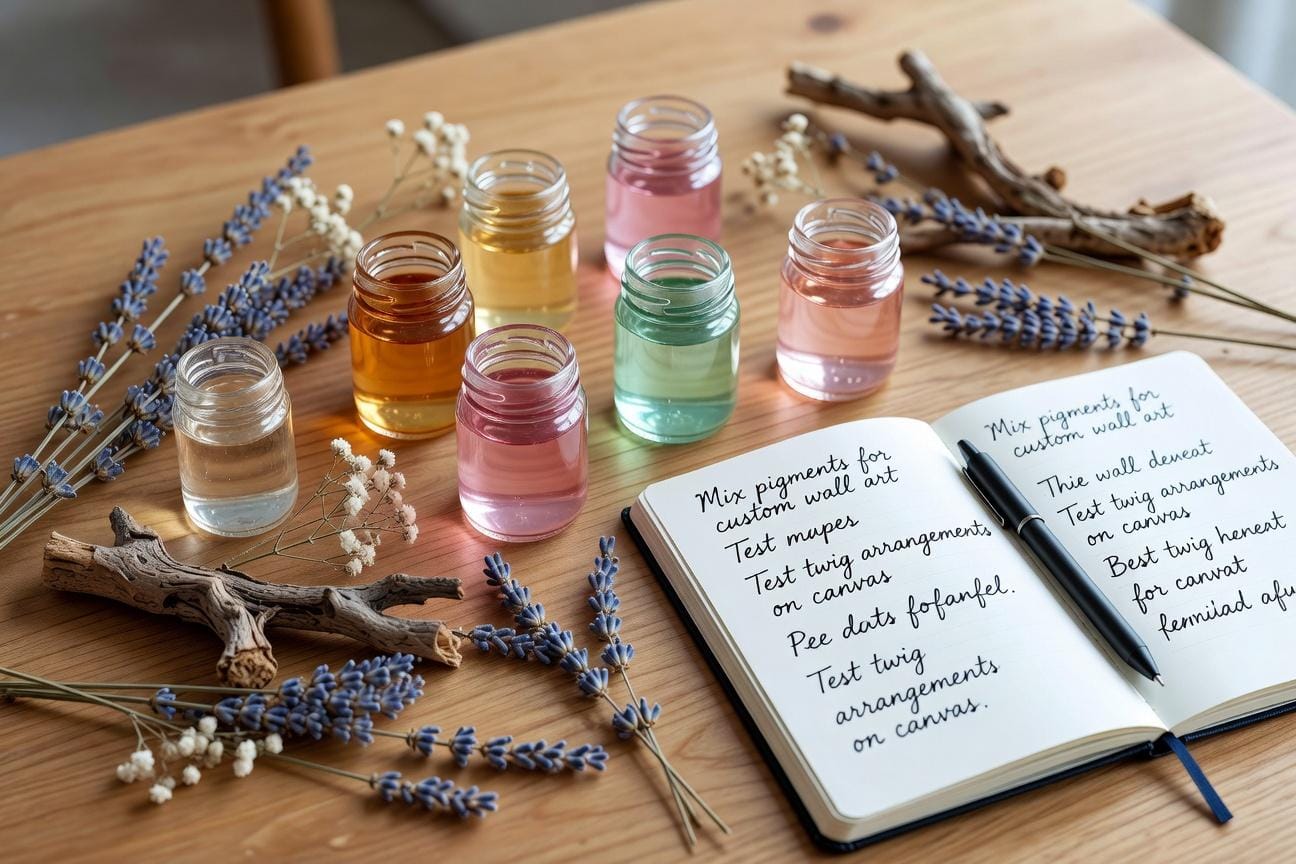 Mix pigments for
custom wall art
Test mupes
Test twig arrangements
on canvas
Pee dats fofanfel.
Test twig
arrangements
on canvas.
Mix pigments for
custom wall art
Thie wall deveat
Test twig arrangements
on canvas
Best twig heneat
for canvat
afu